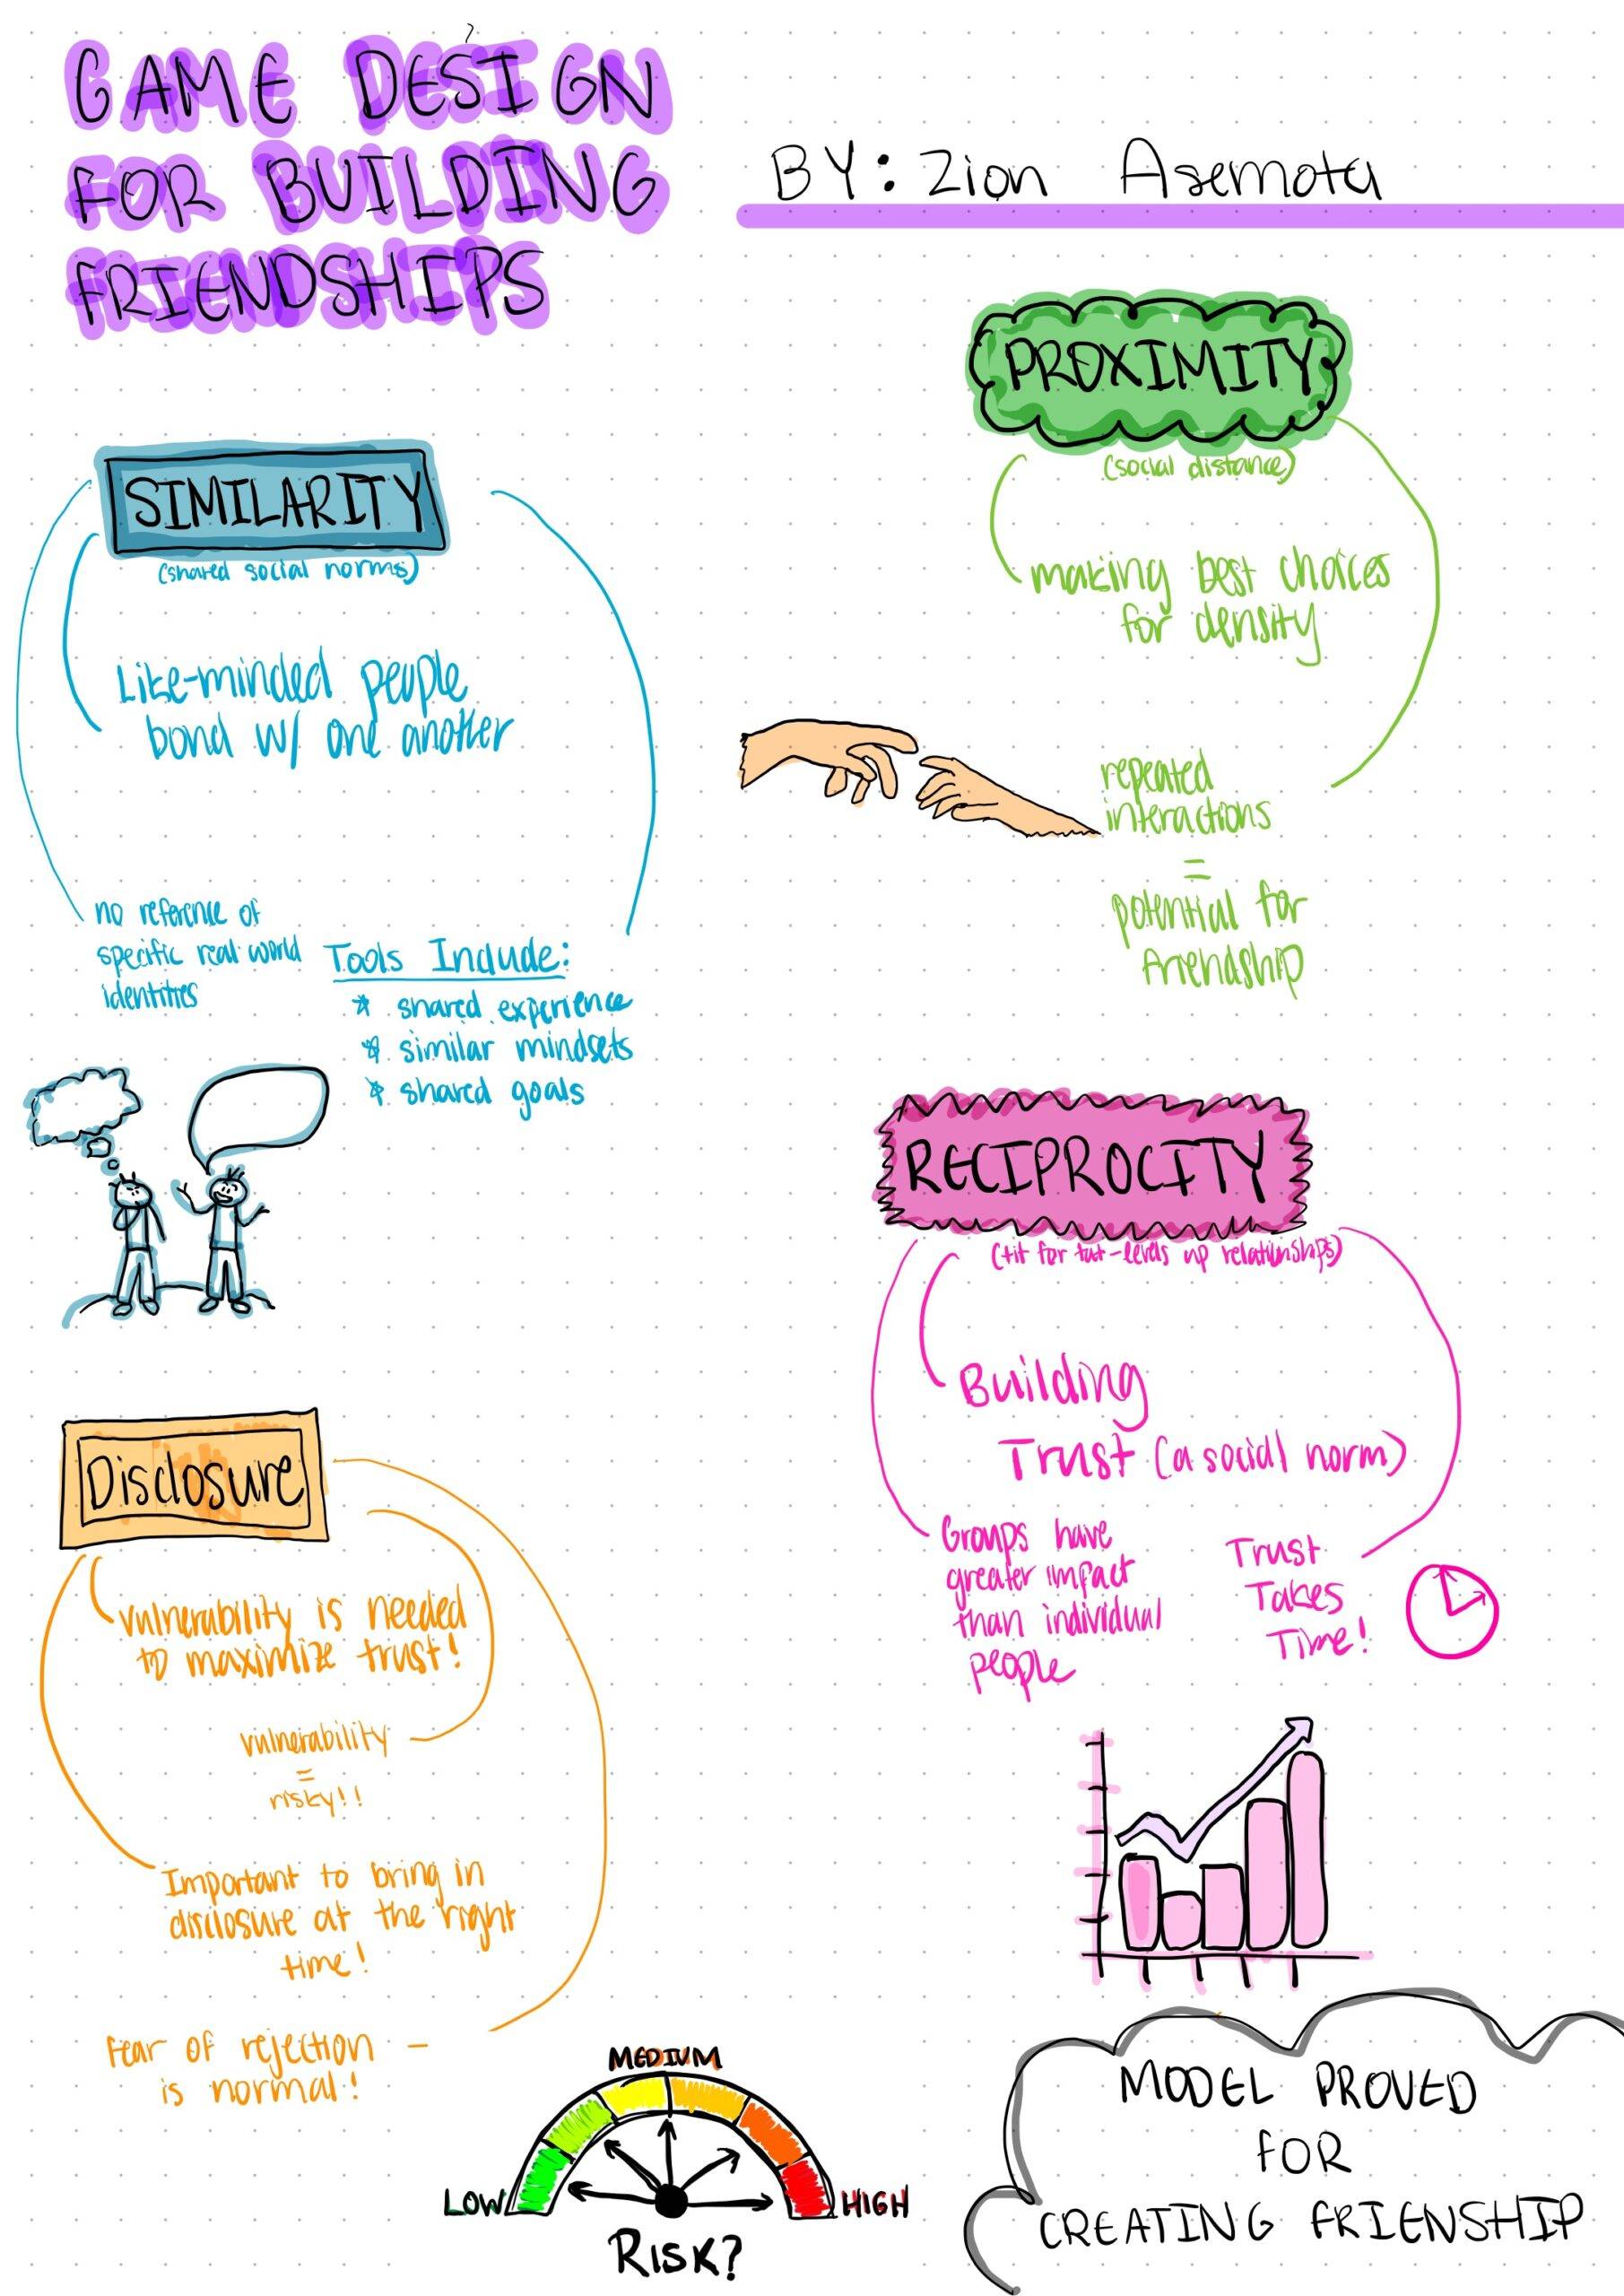 GAME DESIGN
FOR BUILDING
FRIENDSHIPS
BY: Zion Asemota
SIMILARITY
(shared social norms)
Like-minded people
bond w/ one another
no reference of
specific real world
identities
Tools Include:
* shared experience
* similar mindsets
* shared goals
PROXIMITY
(social distance)
making best choices
for density
repeated
interactions
=
potential for
friendship
RECIPROCITY
(tit for tat-levels up relationships)
Building
Trust (a social norm)
Groups have
greater impact
than individual
people
Trust
Takes
Time!
Disclosure
Vulnerability is needed
to maximize trust!
vulnerability
=
risky!!
Important to bring in
disclosure at the right
time!
Fear of rejection -
is normal!
LOW
MEDIUM
HIGH
RISK?
MODEL PROVED
FOR
CREATING FRIENSHIP